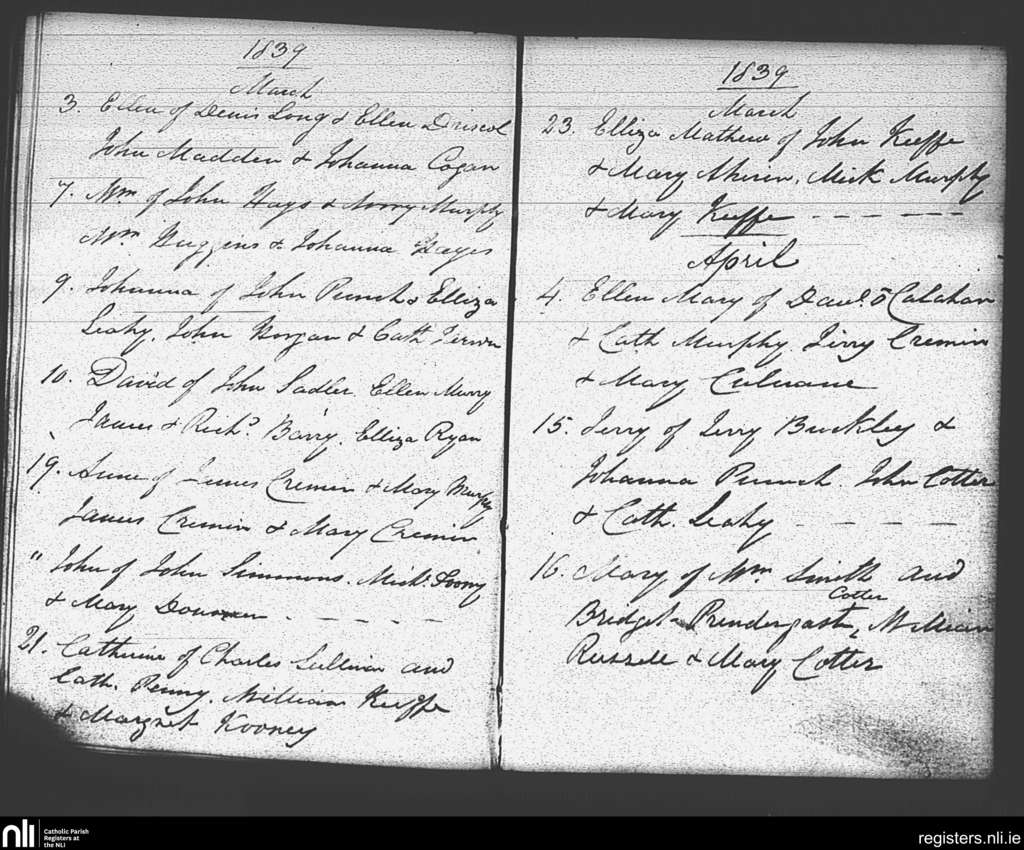 1839
March
3. Ellen of Denis Long & Ellen Driscol
John Madden & Johanna Cogan
7. Wm of John Hays & Murphy
Wm Huggins & Johanna Hayes
9. Johanna of John Punch & Elliza
Leahy. John & Cath
10. David of John Sadler. Ellen Murry
James & Richd. Barry. Elliza Ryan
19. Anne of James Cremin & Mary Murphy
James Cremin & Mary Cremin
" John of John Simmons. Mick.
& Mary - - - - -
21. Catherine of Charles Sullivan and
Cath. Penny. William Keeffe
& Margret Kooney
1839
March
23. Elliza Mathew of John Keeffe
& Mary Aherin. Mick Murphy
& Mary Keeffe - - - - - -
April
4. Ellen Mary of Danl. O Calahan
& Cath Murphy. Jerry Cremin
& Mary Culnane
15. Jerry of Jerry Buckley &
Johanna Punch. John Cotter
& Cath. Leahy - - - - -
16. Mary of Wm Smith and
Cotter
Bridget Prendergast, William
Russell & Mary Cotter
nli Catholic Parish
Registers at
the NLI
registers.nli.ie